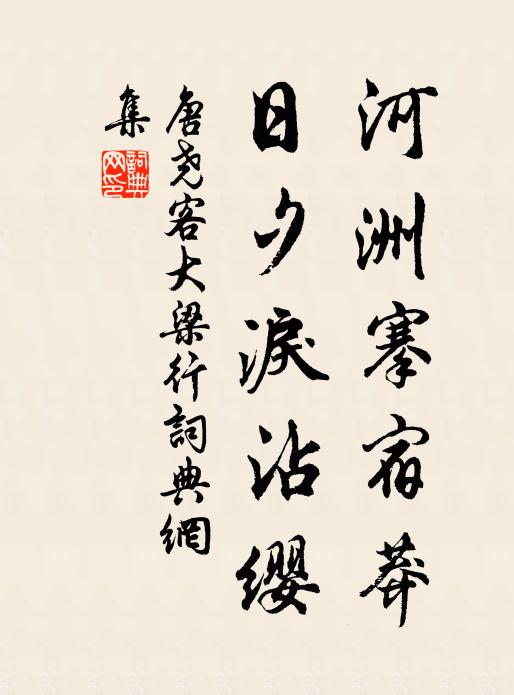 河洲搴宿莽
日夕淚沾纓
唐尧客大梁行詞典網
集
詞典
网印